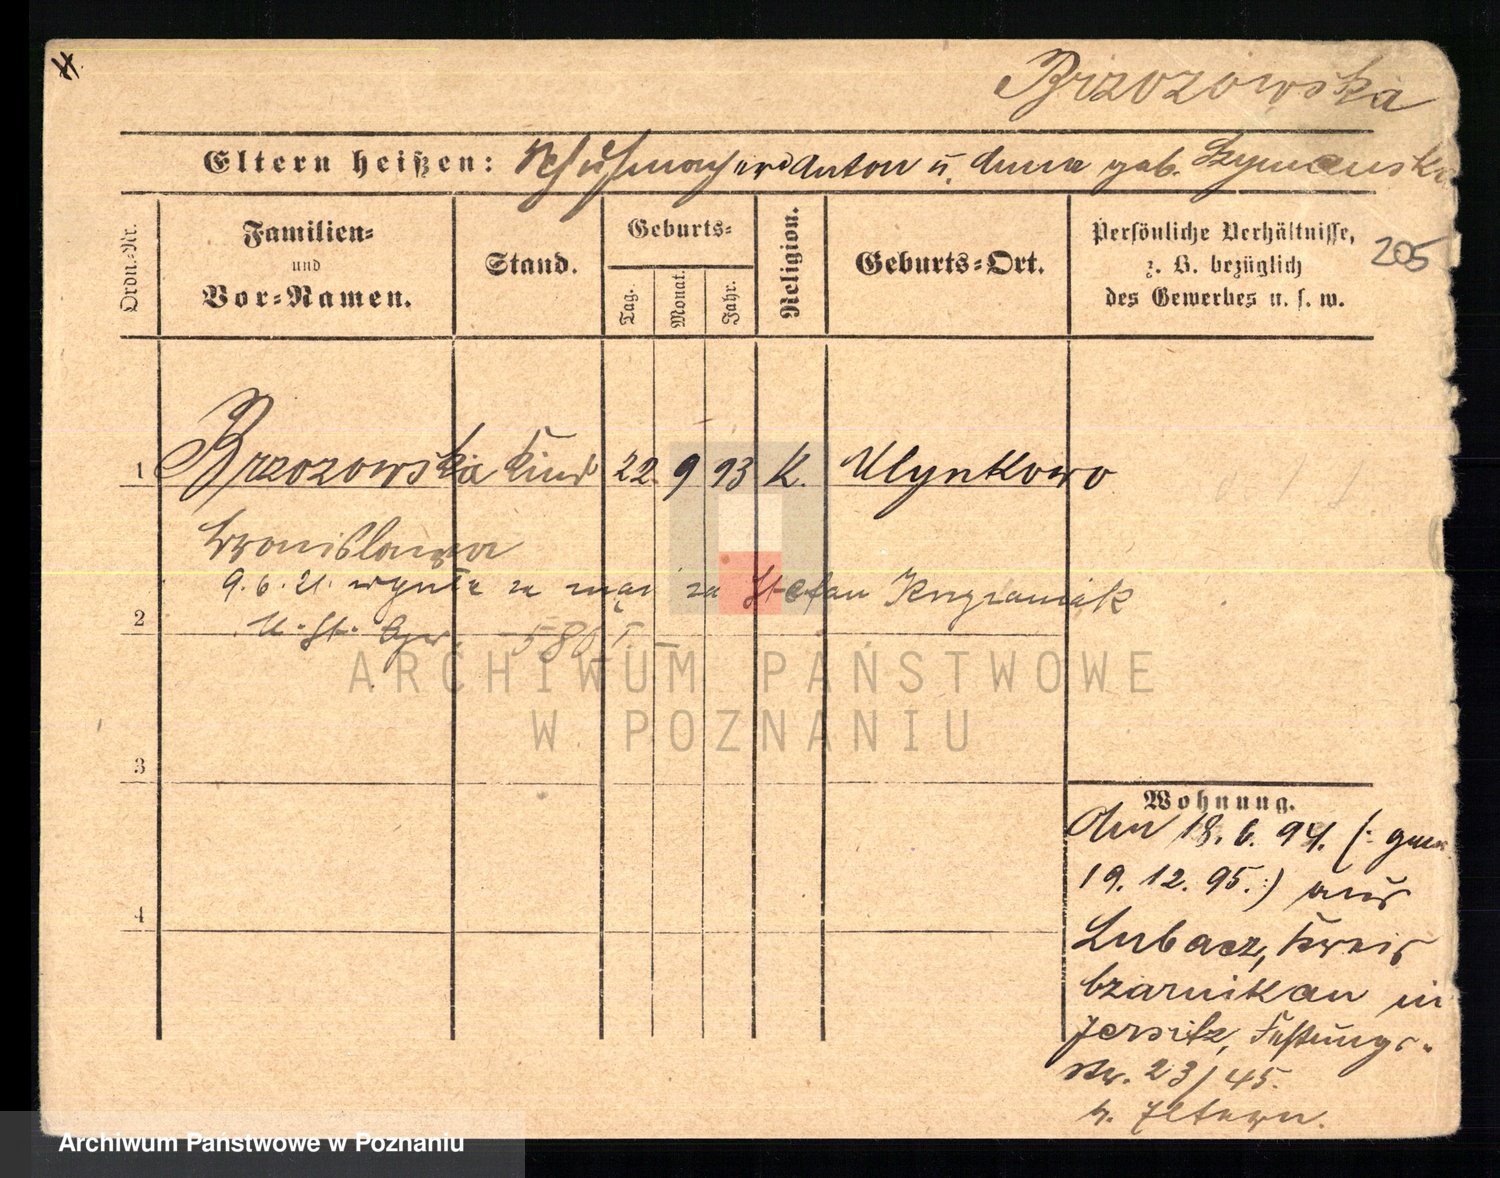 Brzozowska
Eltern heißen: Schuhmacher Anton u. Anna geb. Szymanska
Ordn.-Nr.
Familien-
und
Vor-Namen.
Stand.
Geburts-
Tag.
Monat.
Jahr.
Religion.
Geburts-Ort.
Persönliche Verhältnisse,
z. B. bezüglich
des Gewerbes u. s. w.
205
1 Brzozowska Kind 22. 9 93 K. Mlynkowo
Bronislawa
9.6.21. wyszła za mąż za Stefan
2
U. St.
3
Wohnung.
den 18. 6. 94. (: gem.
19. 12. 95. :) aus
Lubacz, Kreis
Czarnikau in
Jersitz, Festungs-
str. 23/45.
b. Eltern.
4
ARCHIWUM PAŃSTWOWE
W POZNANIU
Archiwum Państwowe w Poznaniu